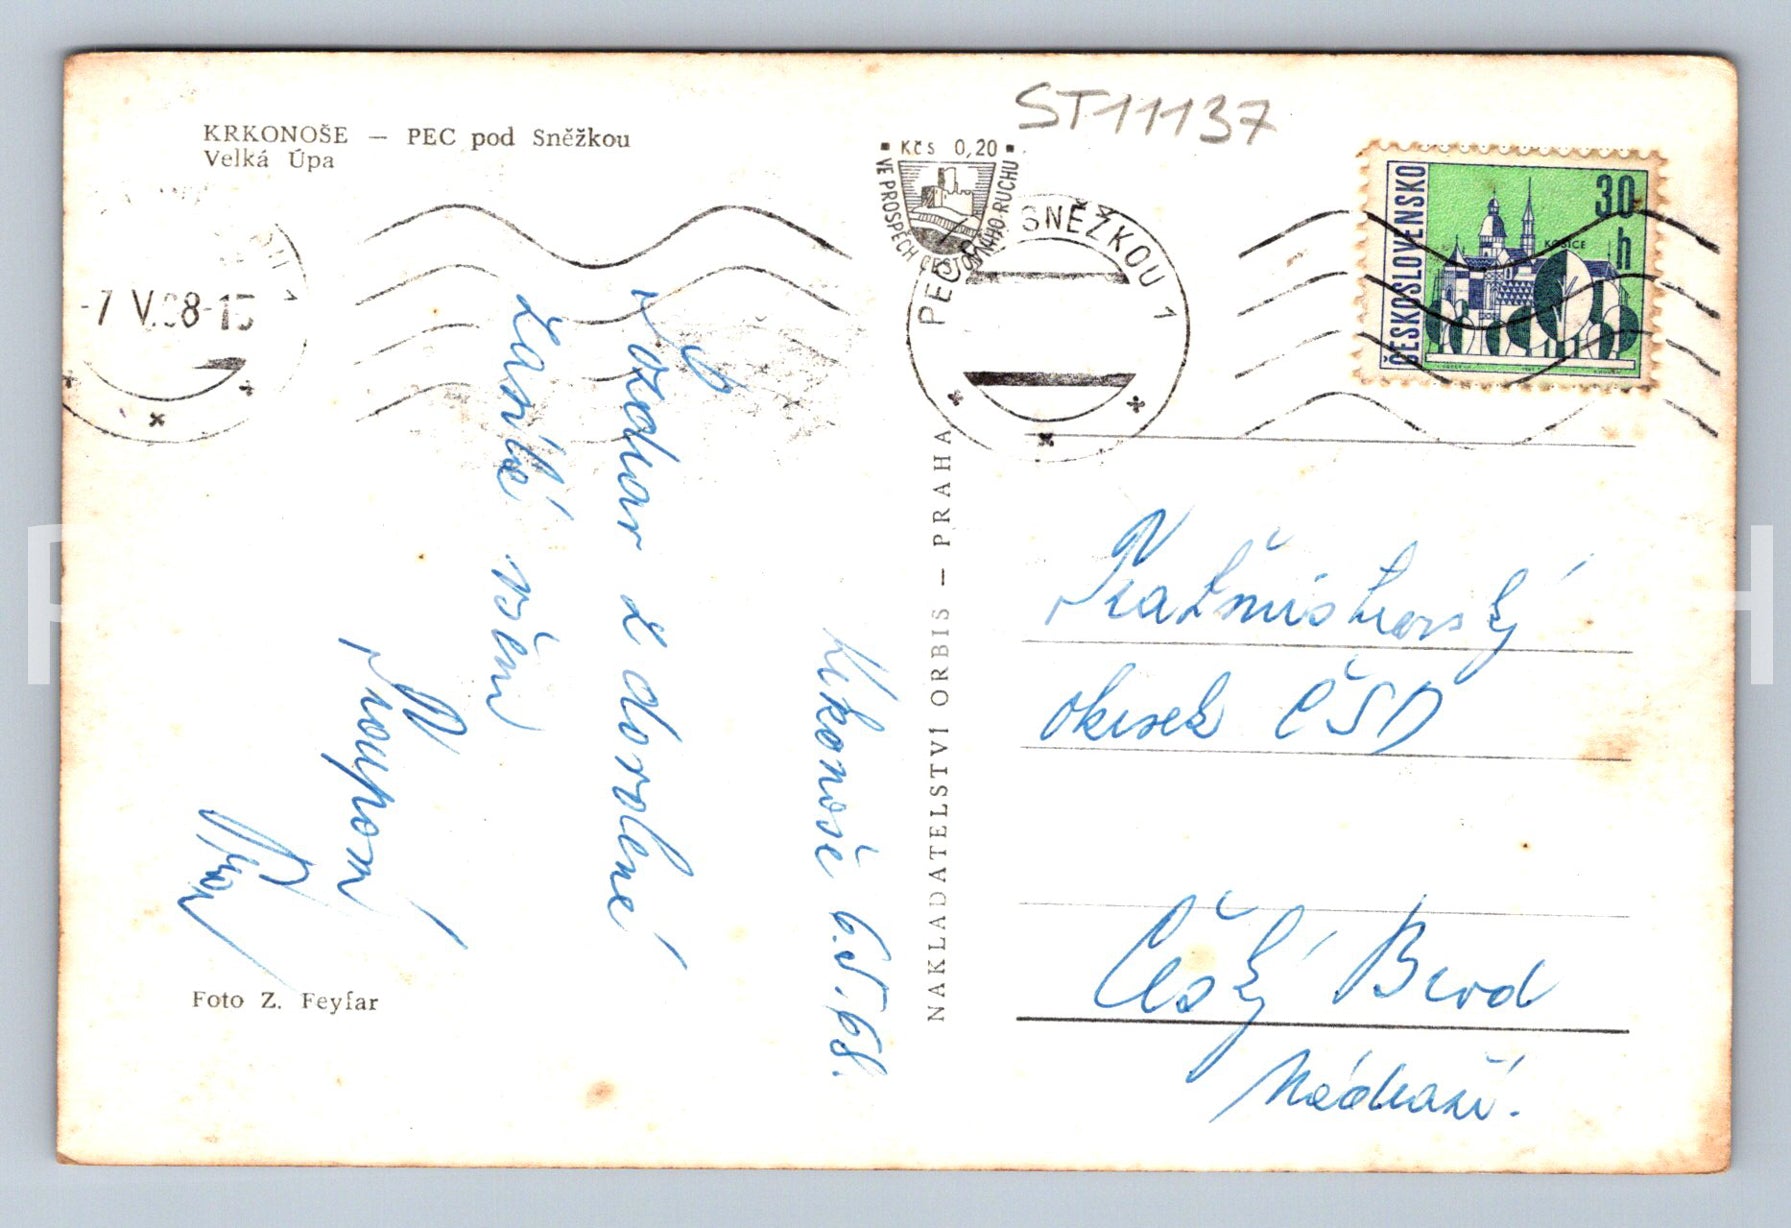 KRKONOŠE — PEC pod Sněžkou
Velká Úpa
ST11137
Kčs 0,20
VE PROSPĚCH CESTOVNÍHO RUCHU
PEC POD SNĚŽKOU 1
-7 V.68-15
ČESKOSLOVENSKO
30 h
KOŠICE
Krkonoše 6.V.68.
Pozdrav z dovolené
zasílá všem
NAKLADATELSTVÍ ORBIS — PRAHA
Traťmistrovský
okrsek ČSD
Český Brod
Nádraží.
Foto Z. Feyfar